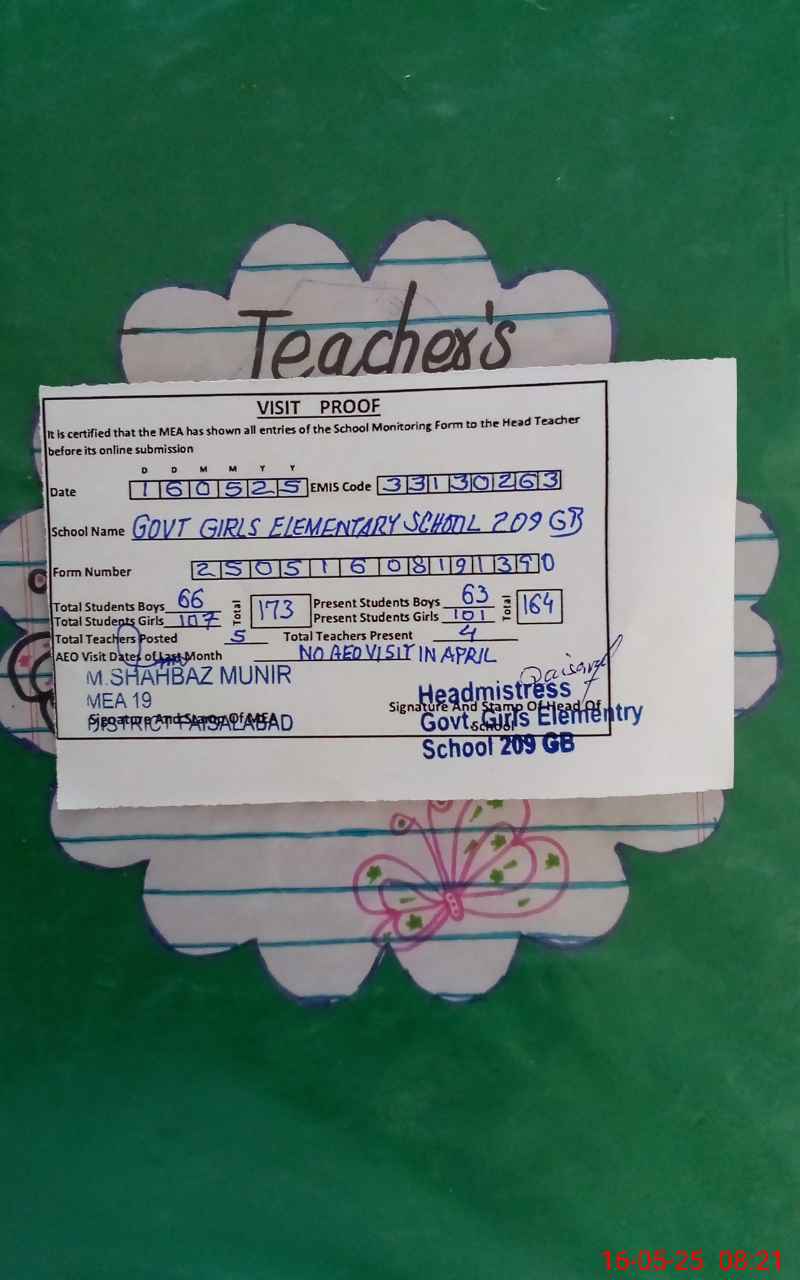 Teacher's
VISIT PROOF
It is certified that the MEA has shown all entries of the School Monitoring Form to the Head Teacher
before its online submission
D D M M Y Y
Date 160525 EMIS Code 33130263
School Name GOVT GIRLS ELEMENTARY SCHOOL 209 GB
Form Number 25051608191390
Total Students Boys 66 Total 173 Present Students Boys 63 Total 164
Total Students Girls 107 Present Students Girls 101
Total Teachers Posted 5 Total Teachers Present 4
AEO Visit Dates of Last Month NO AEO VISIT IN APRIL
M.SHAHBAZ MUNIR
MEA 19
DISTRICT FAISALABAD
Signature And Stamp Of MEA
Signature And Stamp Of Head Of
School
Headmistress
Govt. Girls Elementry
School 209 GB
16-05-25 08:21